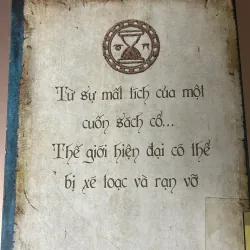 Từ sự mất tích của một
cuốn sách cổ...
Thế giới hiện đại có thể
bị xé toạc và rạn vỡ